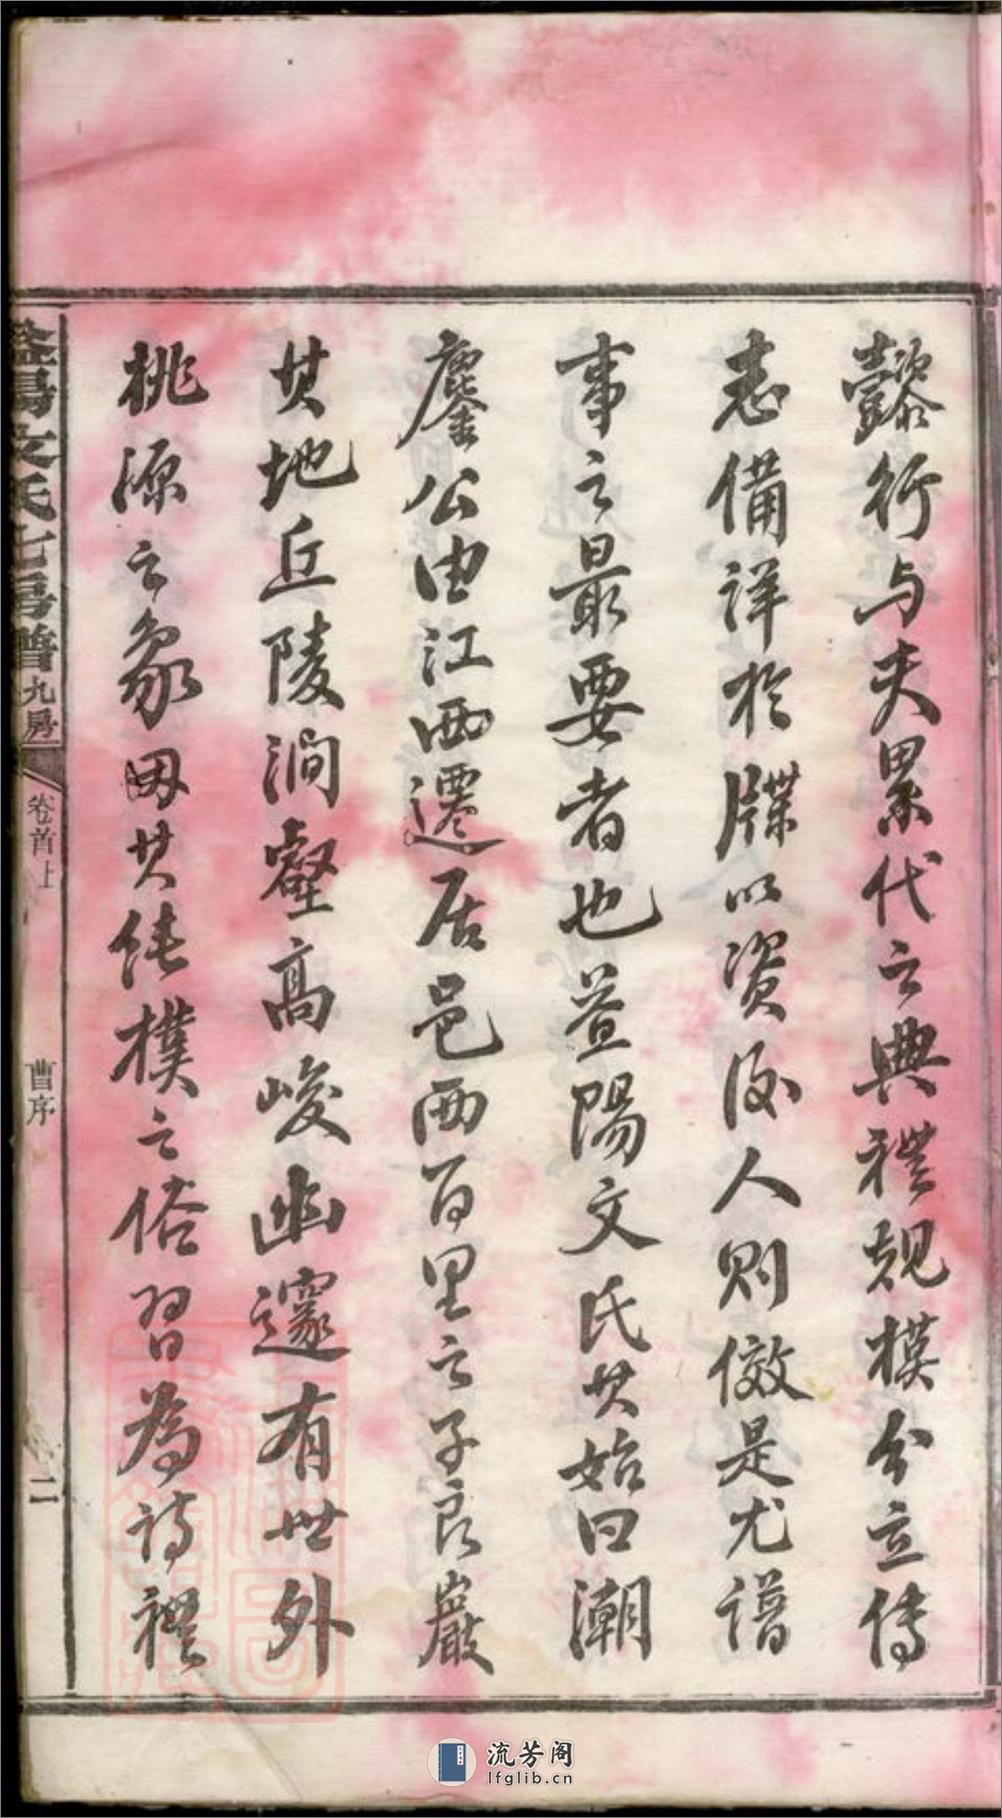 懿行与夫累代之典禮規模分立傳
志備詳於牒以資後人則傚是尤譜
事之最要者也益陽文氏其始曰潮
鏖公由江西遷居邑西百里之子良巖
其地丘陵澗壑高峻幽邃有世外
桃源之象因其純樸之俗習為詩禮
益陽文氏七房譜 九房
卷首上
曹序
二
流芳阁
lfglib.cn